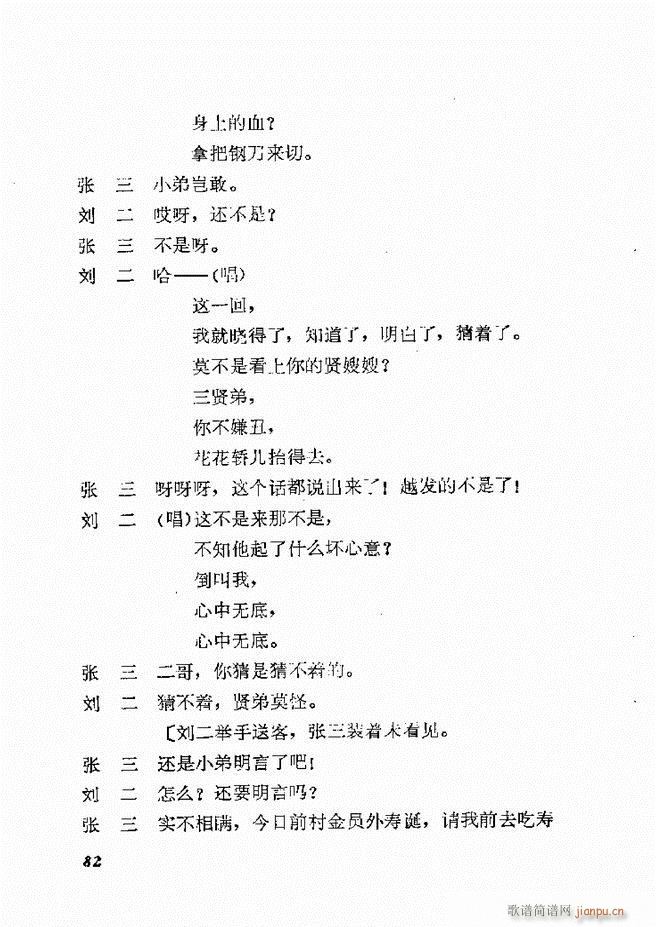 身上的血?
拿把钢刀来切。
张 三 小弟岂敢。
刘 二 哎呀，还不是?
张 三 不是呀。
刘 二 哈——(唱)
这一回，
我就晓得了，知道了，明白了，猜着了。
莫不是看上你的贤嫂嫂?
三贤弟，
你不嫌丑，
花花轿儿抬得去。
张 三 呀呀呀，这个话都说出来了! 越发的不是了!
刘 二 (唱)这不是来那不是，
不知他起了什么坏心意?
倒叫我，
心中无底，
心中无底。
张 三 二哥，你猜是猜不着的。
刘 二 猜不着，贤弟莫怪。
〔刘二举手送客，张三装着未看见。
张 三 还是小弟明言了吧!
刘 二 怎么? 还要明言吗?
张 三 实不相瞒，今日前村金员外寿诞，请我前去吃寿
82
歌谱简谱网 jianpu.cn